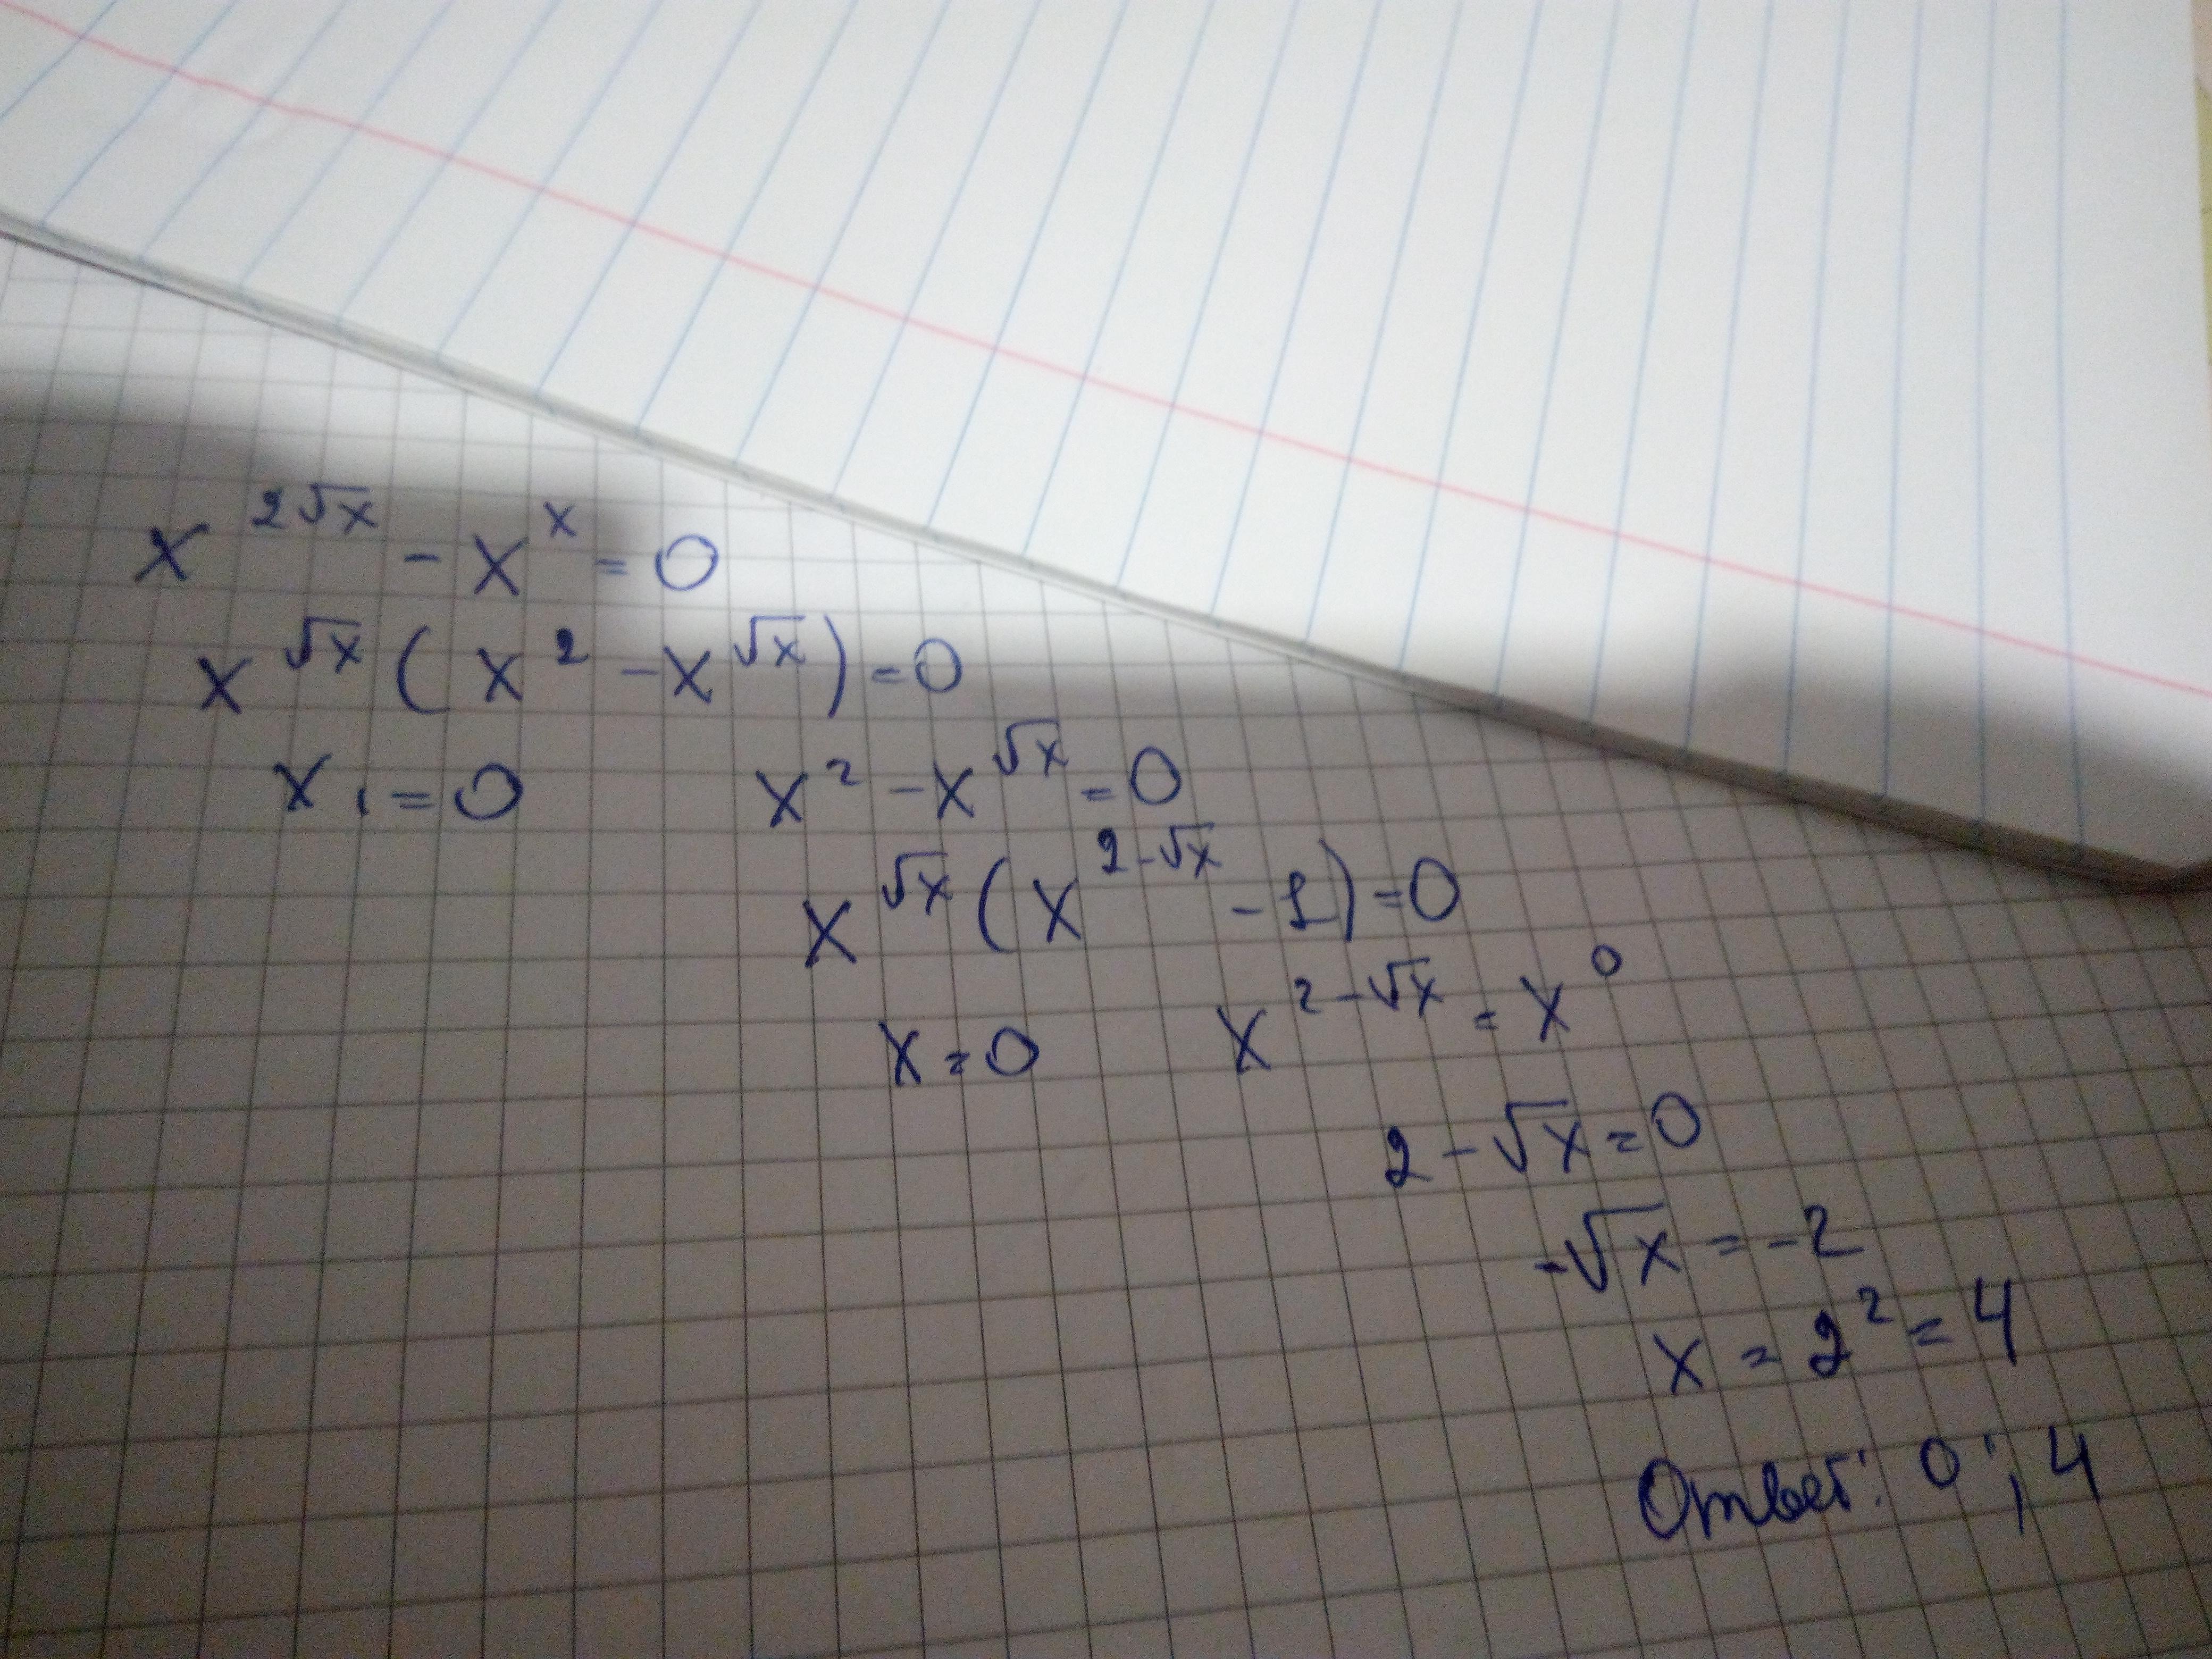 x^{2√x} - x^x = 0
x^{√x} (x^2 - x^{√x}) = 0
x_1 = 0    x^2 - x^{√x} = 0
x^{√x} (x^{2-√x} - 1) = 0
x = 0    x^{2-√x} = x^0
2 - √x = 0
-√x = -2
x = 2^2 = 4
Ответ: 0; 4